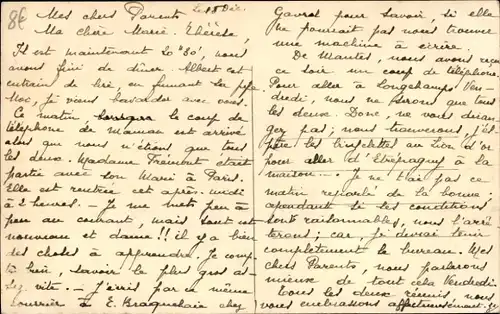 8€
Le 18 Déc.
Mes chers Parents
Ma chère Marie-Thérèse,
Il est maintenant 20 h, nous
avons fini de dîner. Albert est
entrain de lire en fumant la pipe.
Moi, je viens bavarder avec vous.
Ce matin, lorsque le coup de
téléphone de Maman est arrivé
alors que nous n'étions que tous
les deux. Madame Tremont était
partie avec son Mari à Paris.
Elle est rentrée cet après-midi
à 2 heures. - Je me mets peu à
peu au courant, mais tout est
nouveau et dame!! il y a bien
des choses à apprendre. Je compte
lire, savoir le plus
vite. - J'écris par ce même
courrier à E. chez
Gavrot pour savoir, si elle
ne pourrait pas nous trouver
une machine à écrire.
De Mantes, nous avons reçu
ce soir un coup de téléphone
Pour aller à Longchamps Ven-
dredi, nous ne serons que tous
les deux. Donc, ne vous déran-
gez pas; nous trouverons j'es-
père les bicyclettes au Lion d'or
pour aller d'Etrepagny à la
maison. - Je ne t'ai pas ce
matin reparlé de la bonne
cependant si les conditions
sont raisonnables, nous l'arrê-
terons; car, je devrai tenir
complètement le bureau. Mes
chers Parents, nous parlerons
mieux de tout cela Vendredi.
Tous les deux réunis, nous
vous embrassons affectueusement.